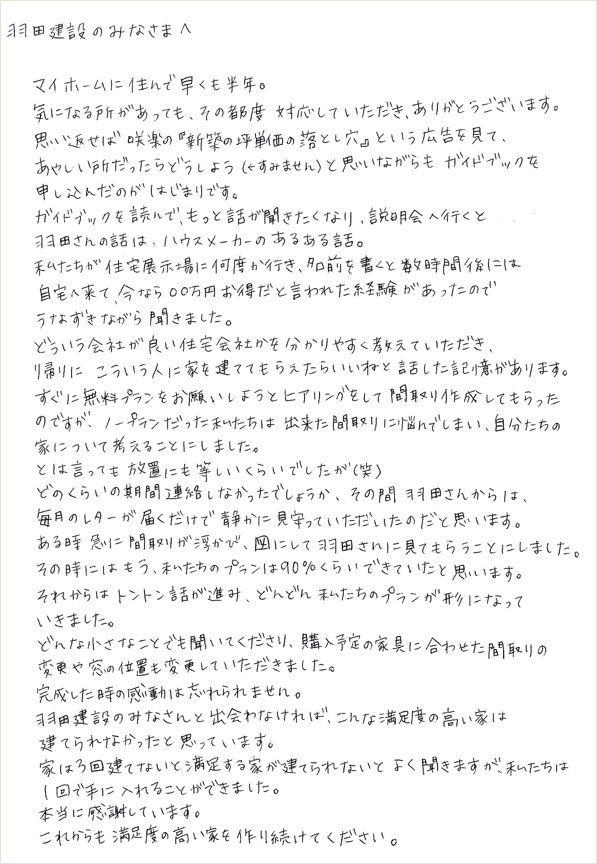 羽田建設のみなさまへ
マイホームに住んで早くも半年。
気になる所があっても、その都度 対応していただき、ありがとうございます。
思い返せば 咲楽の『新築の坪単価の落とし穴』という広告を見て、
あやしい所だったらどうしよう(←すみません)と思いながらも ガイドブックを
申し込んだのが はじまりです。
ガイドブックを読んで、もっと話が聞きたくなり、説明会へ行くと
羽田さんの話は、ハウスメーカーの あるある話。
私たちが住宅展示場に何度か行き、名前を書くと数時間後には
自宅へ来て、今なら〇〇万円お得だと言われた経験があったので
うなずきながら聞きました。
どういう会社が良い住宅会社かを分かりやすく教えていただき、
帰りに こういう人に家を建ててもらえたらいいねと話した記憶があります。
すぐに無料プランをお願いしようとヒアリングをして間取り作成してもらった
のですが、ノープランだった私たちは 出来た間取りに悩んでしまい、自分たちの
家について考えることにしました。
とは言っても放置にも等しいくらいでしたが(笑)
どのくらいの期間連絡しなかったでしょうか、その間 羽田さんからは、
毎月のレターが届くだけで静かに見守っていただいたのだと思います。
ある時 急に間取りが浮かび、図にして羽田さんに見てもらうことにしました。
その時には もう、私たちのプランは90%くらいできていたと思います。
それからは トントン話が進み、どんどん私たちのプランが形になって
いきました。
どんな小さなことでも聞いてくださり、購入予定の家具に合わせた間取りの
変更や窓の位置も変更していただきました。
完成した時の感動は忘れられません。
羽田建設のみなさんと出会わなければ、こんな満足度の高い家は
建てられなかったと思っています。
家は3回建てないと満足する家が建てられないと よく聞きますが、私たちは
1回で手に入れることができました。
本当に感謝しています。
これからも満足度の高い家を作り続けてください。